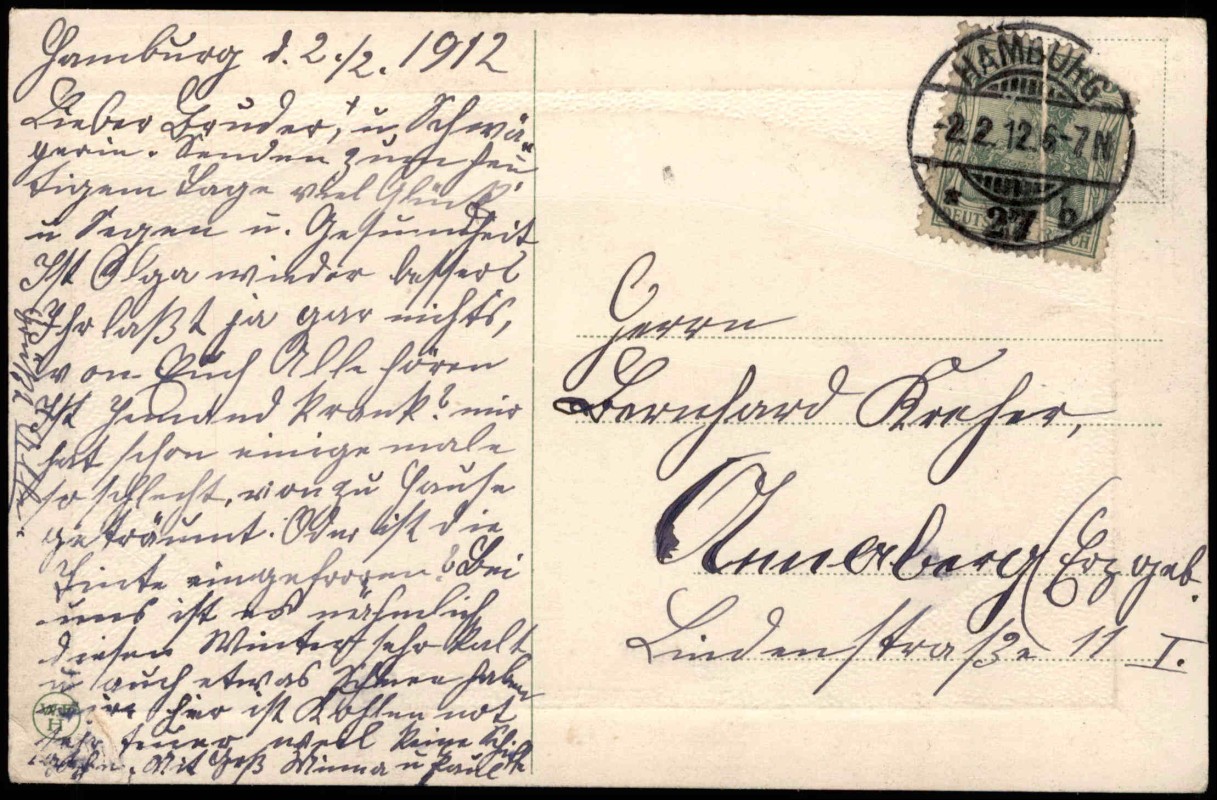 Hamburg d. 2./2. 1912
Lieber Bruder, u. Schwä-
gerin. Senden zum heu-
tigem Tage viel Glück
u Segen u. Gesundheit
Ist Olga wieder besser?
Ihr laßt ja gar nichts,
von Euch Alle hören
Ist Jemand krank? mir
hat schon einige male
so schlecht, von zu Hause
geträumt. Oder ist die
Tinte eingefroren? Bei
uns ist es nähmlich
diesen Winter sehr kalt
u auch etwas Schnee haben
wir. hier ist Kohlen not
sehr teuer weil keine Schiffe
Mit Gruß Minna u Paul
HAMBURG
-2.2.12.6-7N
* 27 b
DEUTSCHES REICH
Herrn
Bernhard Kreher,
Annaberg (Erzgeb.
Lindenstraße 11 I.
W.H.
H